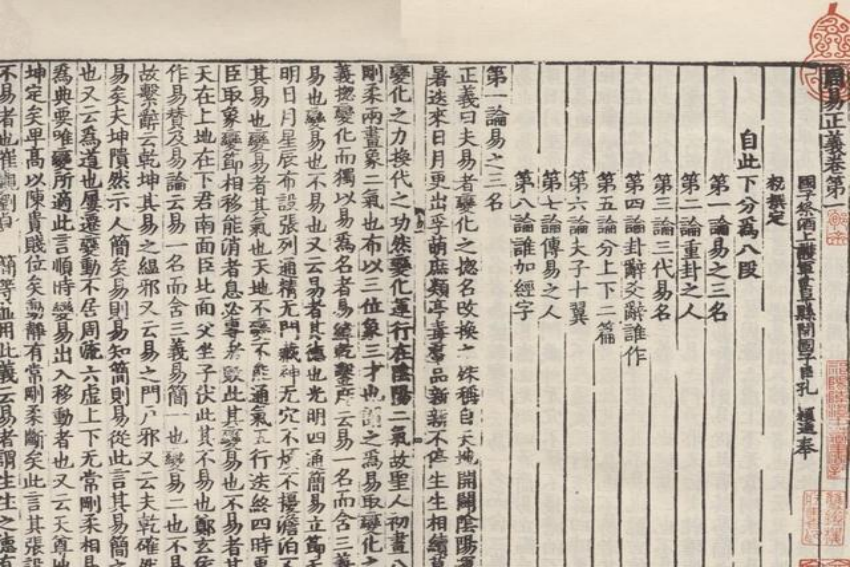 周易正義卷第一
國子祭酒上護軍曲阜縣開國子臣孔穎達奉
勑撰定
自此下分為八段
第一論易之三名
第二論重卦之人
第三論三代易名
第四論卦辭爻辭誰作
第五論分上下二篇
第六論夫子十翼
第七論傳易之人
第八論誰加經字
第一論易之三名
正義曰夫易者變化之揔名改換之殊稱自天地開闢陰陽
暑迭來日月更出孚萌庶類亭毒羣品新新不停生生相續莫
變化之力換代之功然變化運行在陰陽二氣故聖人初畫八
剛柔兩畫象二氣也布以三位象三才也謂之為易取變化之
義揔變化而獨以易為名者易緯乾鑿度云易一名而含三義
易也變易也不易也又云易者其德也光明四通簡易立節天
明日月星辰布設張列通精无門藏神无穴不煩不擾澹泊不
其易也變易者其氣也天地不變不能通氣五行迭終四時更
臣取象變節相移能消者息必專者敗此其變易也不易者其
天在上地在下君南面臣北面父坐子伏此其不易也鄭玄依
作易贊及易論云易一名而含三義易簡一也變易二也不易
故繫辭云乾坤其易之緼邪又云易之門户邪又云夫乾確然
易矣夫坤隤然示人簡矣易則易知簡則易從此言其易簡之
也又云為道也屢遷變動不居周流六虛上下无常剛柔相易
為典要唯變所適此言順時變易出入移動者也又云天尊地
坤定矣卑高以陳貴賤位矣動靜有常剛柔斷矣此言其張設
不易者也崔覲劉貞簡等並用此義云易者謂生生之德有